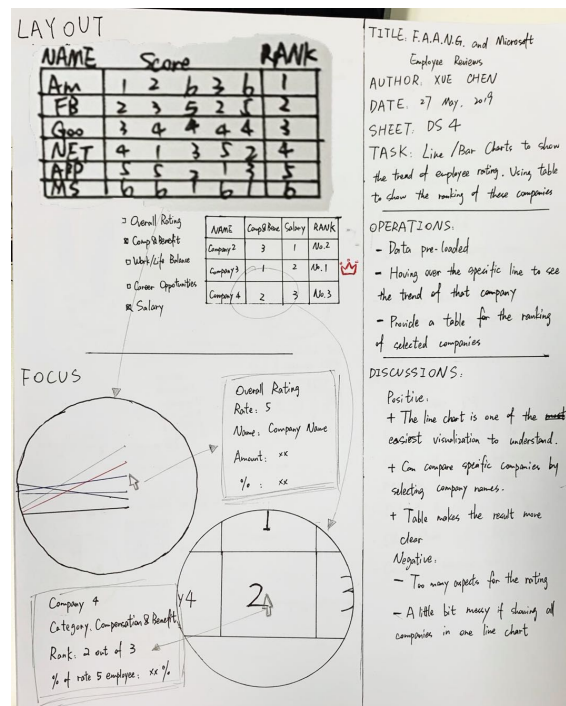 LAYOUT
NAME Score RANK
Am 1 2 6 3 6 1
FB 2 3 5 2 5 2
Goo 3 4 4 4 4 3
NET 4 1 3 5 2 4
APP 5 5 1 3 5
MS 6 6 1 6 1 6
Overall Rating
Comp & Benefit
Work/Life Balance
Career Oppotunities
Salary
NAME Comp&Bene Salary RANK
Company 2 3 1 No.2
Company 3 1 2 No.1
Company 4 2 3 No.3
FOCUS
Overall Rating
Rate: 5
Name: Company Name
Amount: xx
% : xx
1
y4 2
Company 4
Category: Compensation & Benefit
Rank: 2 out of 3
% of rate 5 employee: xx %
TITLE: F.A.A.N.G. and Microsoft
Employee Reviews
AUTHOR: XUE CHEN
DATE: 27 May. 2019
SHEET: DS 4
TASK: Line /Bar Charts to show
the trend of employee rating. Using table
to show the ranking of these companies
OPERATIONS:
- Data pre-loaded
- Having over the specific line to see
the trend of that company
- Provide a table for the ranking
of selected companies
DISCUSSIONS:
Positive:
+ The line chart is one of the
easiest visualization to understand.
+ Can compare specific companies by
selecting company names.
+ Table makes the result more
clear
Negative:
- Too many aspects for the rating
- A little bit messy if showing all
companies in one line chart